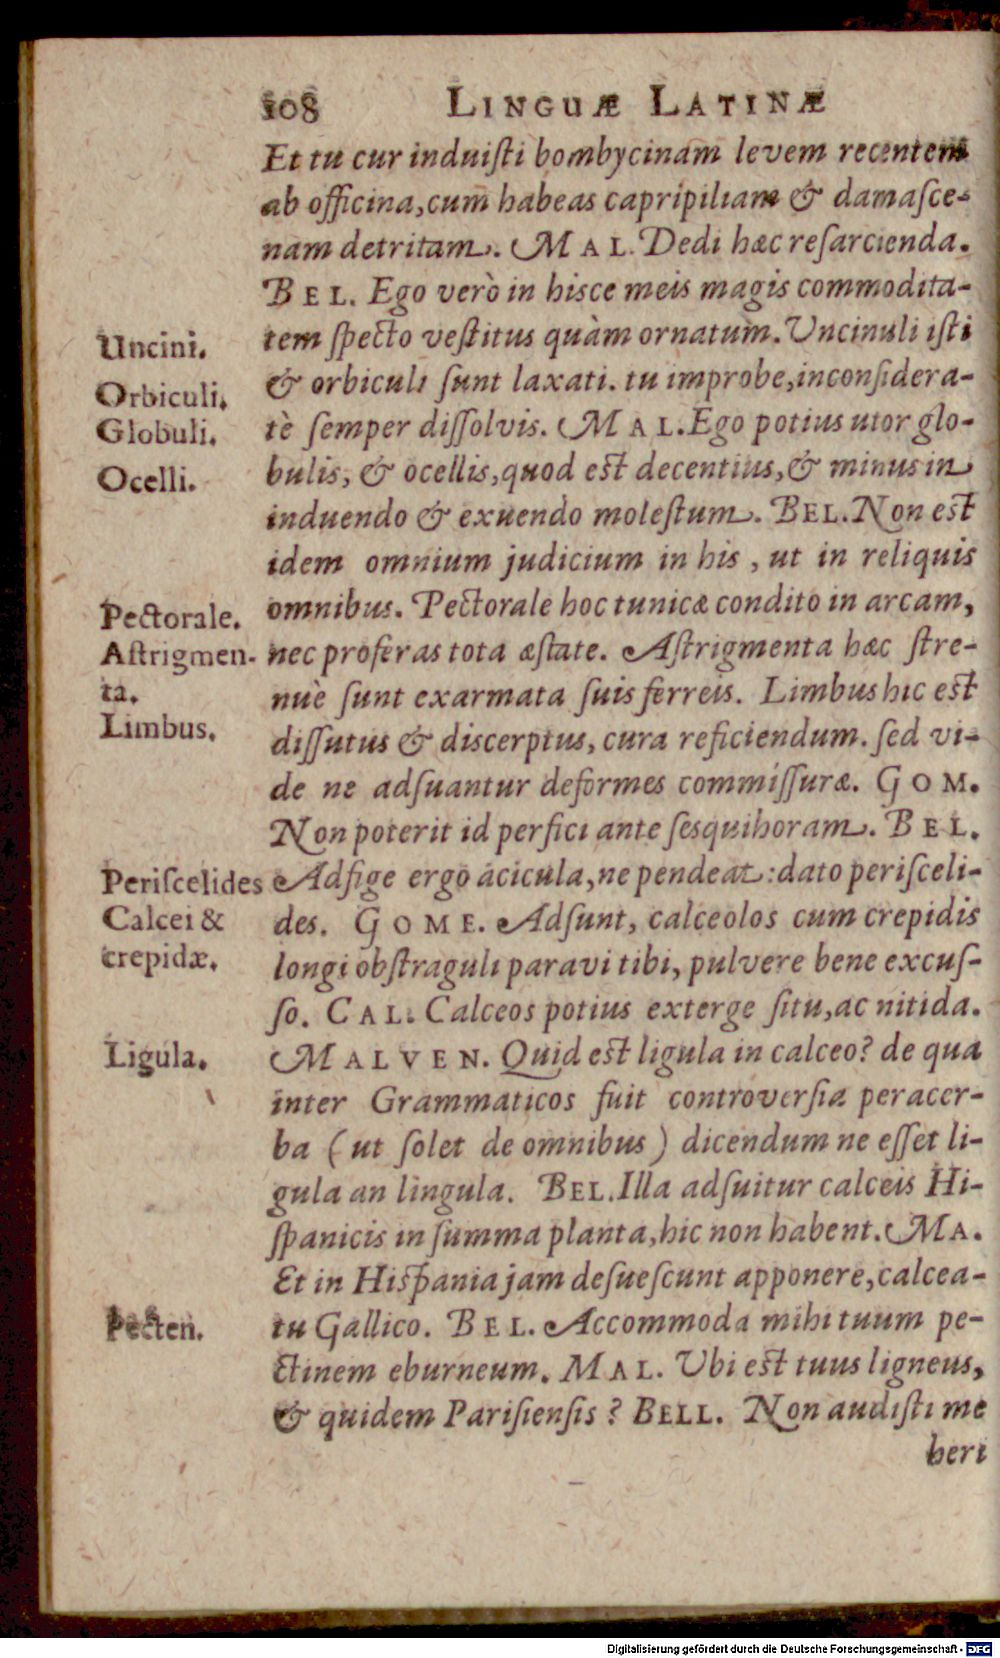 108 LINGUÆ LATINÆ
Et tu cur induiſti bombycinam levem recentem
ab officina, cum habeas capripiliam & damaſce-
nam detritam. MAL. Dedi hæc reſarcienda.
BEL. Ego verò in hisce meis magis commodita-
Uncini. tem ſpecto veſtitus quàm ornatum. Uncinuli iſti
Orbiculi. & orbiculi ſunt laxati. tu improbe, inconſidera-
Globuli. tè ſemper diſſolvis. MAL. Ego potius utor glo-
Ocelli. bulis, & ocellis, quod eſt decentius, & minus in
induendo & exuendo moleſtum. BEL. Non eſt
idem omnium judicium in his, ut in reliquis
Pectorale. omnibus. Pectorale hoc tunicæ condito in arcam,
Aſtrigmen- nec proferas tota æſtate. Aſtrigmenta hæc ſtre-
ta. nuè ſunt exarmata ſuis ferreis. Limbus hic eſt
Limbus. diſſutus & discerptus, cura reficiendum. ſed vi-
de ne adſuantur deformes commiſſuræ. GOM.
Non poterit id perfici ante ſesquihoram. BEL.
Periſcelides Adfige ergo acicula, ne pendeat: dato periſceli-
Calcei & des. GOME. Adſunt, calceolos cum crepidis
crepidæ. longi obſtraguli paravi tibi, pulvere bene excuſ-
ſo. CAL. Calceos potius exterge ſitu, ac nitida.
Ligula. MALVEN. Quid eſt ligula in calceo? de qua
inter Grammaticos fuit controverſia peracer-
ba (ut ſolet de omnibus) dicendum ne eſſet li-
gula an lingula. BEL. Illa adſuitur calceis Hi-
ſpanicis in ſumma planta, hic non habent. MA.
Et in Hiſpania jam deſueſcunt apponere, calcea-
Pecten. tu Gallico. BEL. Accommoda mihi tuum pe-
ctinem eburneum. MAL. Ubi eſt tuus ligneus,
& quidem Pariſienſis? BELL. Non audiſti me
heri
Digitalisierung gefördert durch die Deutsche Forschungsgemeinschaft - DFG